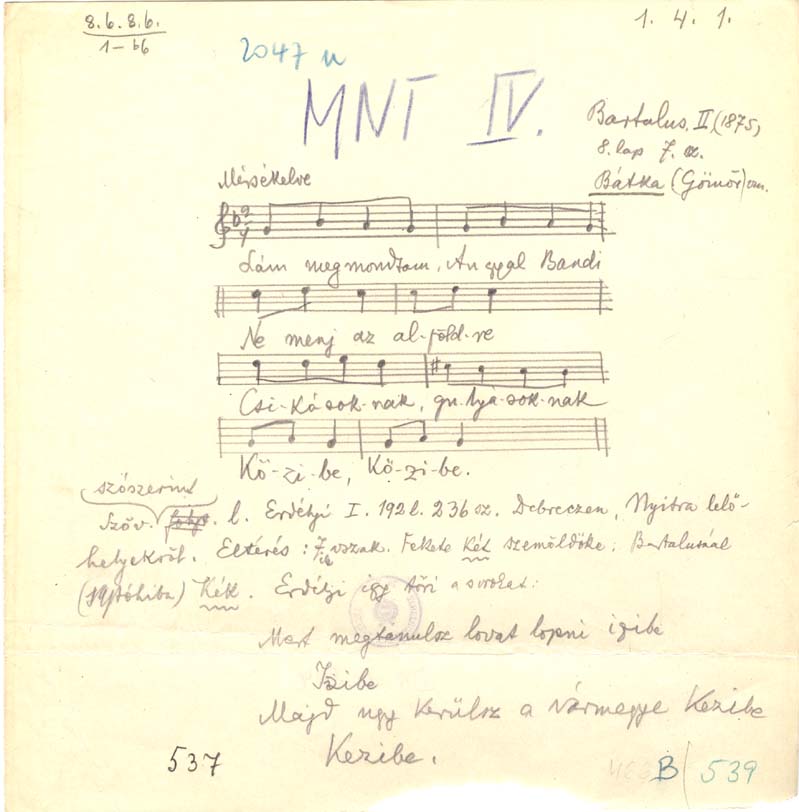 8. 6. 8. 6.
1 – b6
1. 4. 1.
2047 u
MNT IV.
Bartalus. II. (1875)
8. lap 7. sz.
Bátka (Gömör) vm.
Mérsékelve
Lám megmondtam, An gyal Bandi
Ne menj az al-föld-re
Csi-kósok-nak, gu-lyá-sok-nak
Kö-zi-be, Kö-zi-be.
szószerint
Szöv. l. Erdélyi I. 192 l. 236 sz. Debreczen, Nyitra lelő-
helyekről. Eltérés: 7. vszak. Fekete Két szemöldöke; Bartalusnál
(sajtóhiba) Kék. Erdélyi így töri a sorokat:
Mert megtanulsz lovat lopni izibe
Izibe
Majd ugy kerülsz a vármegye Kezibe
Kezibe.
537
B/539